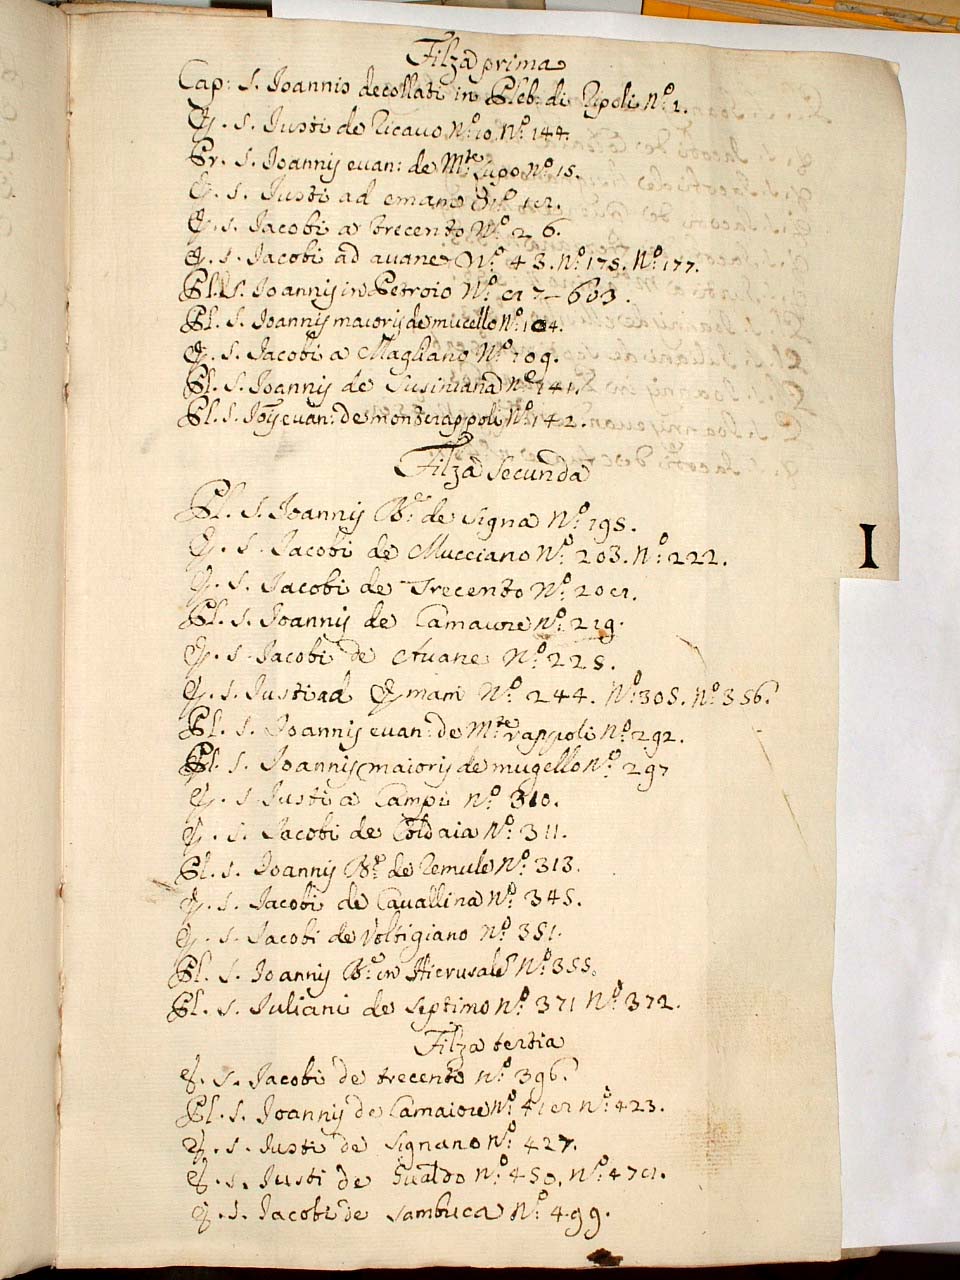 Filza prima
Cap: S. Ioannis decollati in Pleb: di Ripoli N.º 1.
E. S. Iusti de Ricauo N.º 10. N.º 144.
Pr. S. Ioannis euan: de M.te Lupo N.º 15.
E. S. Iusti ad emam
E. S. Iacobi a trecento N.º 26.
E. S. Iacobi ad auane N.º 43. N.º 175. N.º 177.
Pl. S. Ioannis in Petroio N.º 603.
Pl. S. Ioannis maioris de mucello N.º 104.
E. S. Iacobi a Magliano N.º 109.
Pl. S. Ioannis de Susinana N.º 141.
Pl. S. Ioīs euan: de monterappoli N.º 142.
Filza Secunda
Pl. S. Ioannis B.e de Signa N.º 195.
E. S. Iacobi de Mucciano N.º 203. N.º 222.
E. S. Iacobi de Trecento N.º
Pl. S. Ioannis de Camaiore N.º 219.
E. S. Iacobi de Auane N.º 225.
E. S. Iusti ad Emam N.º 244. N.º 305. N.º 356.
Pl. S. Ioannis euan: de M.te rappoli N.º 292.
Pl. S. Ioannis maioris de mugello N.º 297
E. S. Iusti a Campi N.º 310.
E. S. Iacobi de Coldaia N.º 311.
Pl. S. Ioannis B.e de Remule N.º 313.
E. S. Iacobi de Cauallina N.º 345.
E. S. Iacobi de Voltigiano N.º 351.
Pl. S. Ioannis B.e in Hierusale N.º 355.
Pl. S. Iuliani de Septimo N.º 371 N.º 372.
Filza tertia
E. S. Iacobi de trecento N.º 396.
Pl. S. Ioannis de Camaiore N.º N.º 423.
E. S. Iusti de Signano N.º 427.
E. S. Iusti de Gualdo N.º 450. N.º
E. S. Iacobi de Sambuca N.º 499.
I